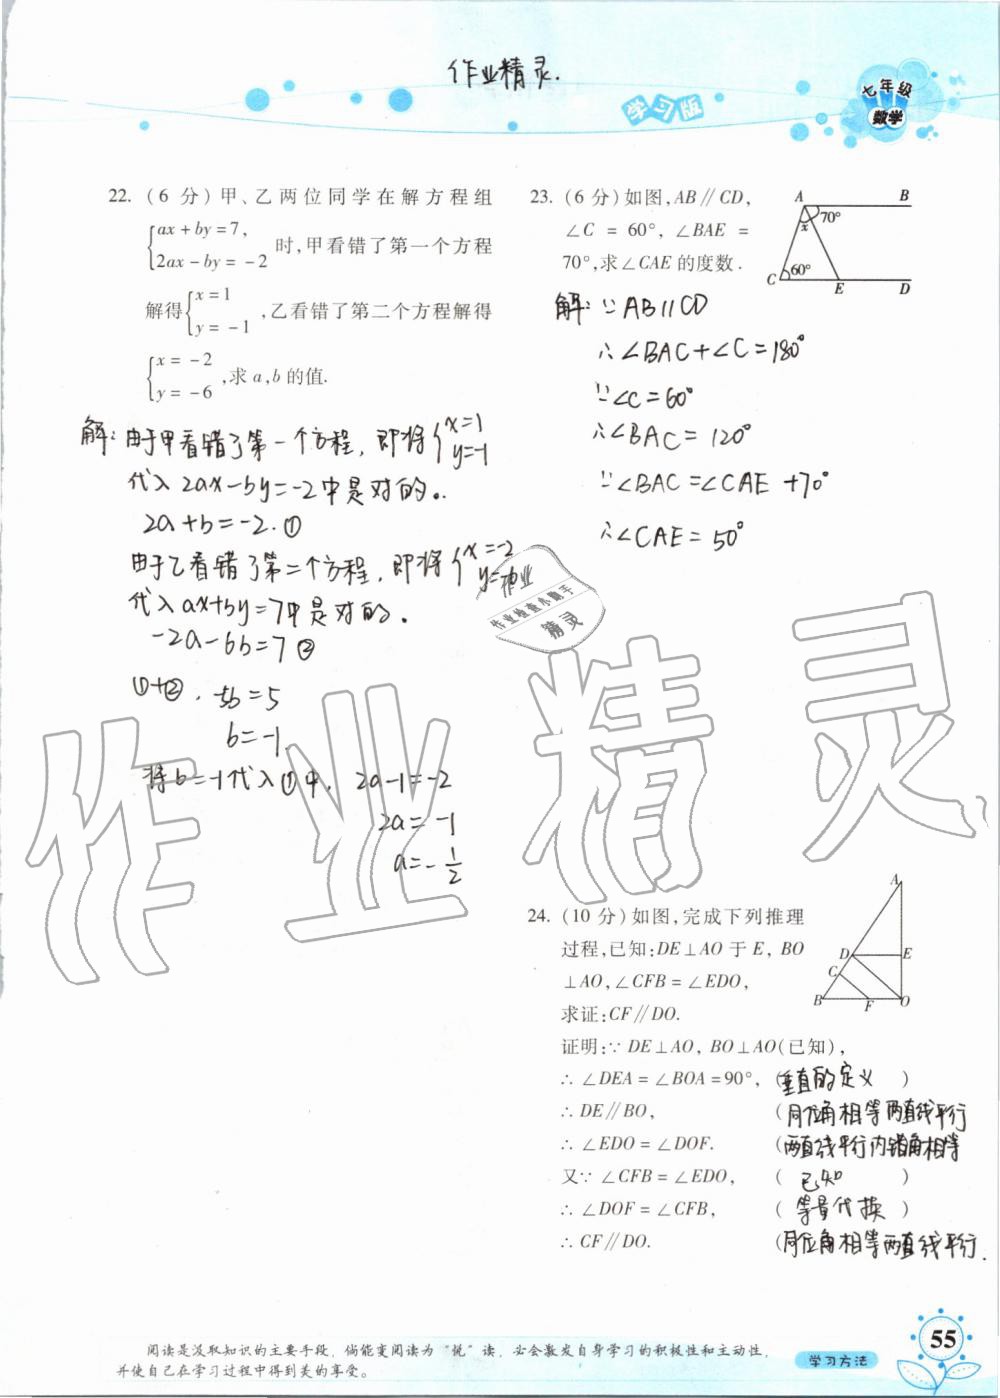 作业精灵.
学习版
七年级
数学
22. (6 分) 甲、乙两位同学在解方程组
{ax + by = 7,
2ax - by = -2 时,甲看错了第一个方程
解得{x = 1
y = -1 ,乙看错了第二个方程解得
{x = -2
y = -6 ,求 a,b 的值.
解: 由于甲看错了第一个方程, 即将{x=1
y=-1
代入 2ax-by=-2中是对的.
2a+b=-2.①
由于乙看错了第二个方程, 即将{x=-2
y=-6
代入ax+by=7中是对的.
-2a-6b=7②
①+②, -5b=5
b=-1.
将b=-1代入①中, 2a-1=-2
2a=-1
a=-1/2
23. (6 分) 如图, AB∥CD,
∠C = 60°, ∠BAE =
70°,求∠CAE 的度数.
A B
70°
x
60°
C E D
解: ∵AB//CD
∴∠BAC+∠C=180°
∵∠C=60°
∴∠BAC=120°
∵∠BAC=∠CAE+70°
∴∠CAE=50°
作业
作业检查小助手
精灵
作业精灵
24. (10 分) 如图,完成下列推理
过程,已知:DE⊥AO 于 E, BO
⊥AO,∠CFB = ∠EDO,
求证:CF∥DO.
A
D E
C
B F O
证明:∵ DE⊥AO, BO⊥AO(已知),
∴ ∠DEA = ∠BOA = 90°, (垂直的定义 )
∴ DE∥BO, (同位角相等两直线平行
∴ ∠EDO = ∠DOF. (两直线平行内错角相等
又∵ ∠CFB = ∠EDO, ( 已知 )
∴ ∠DOF = ∠CFB, ( 等量代换 )
∴ CF∥DO. (同位角相等两直线平行.
阅读是汲取知识的主要手段，倘能变阅读为“悦”读，必会激发自身学习的积极性和主动性，
并使自己在学习过程中得到美的享受。
学习方法
55